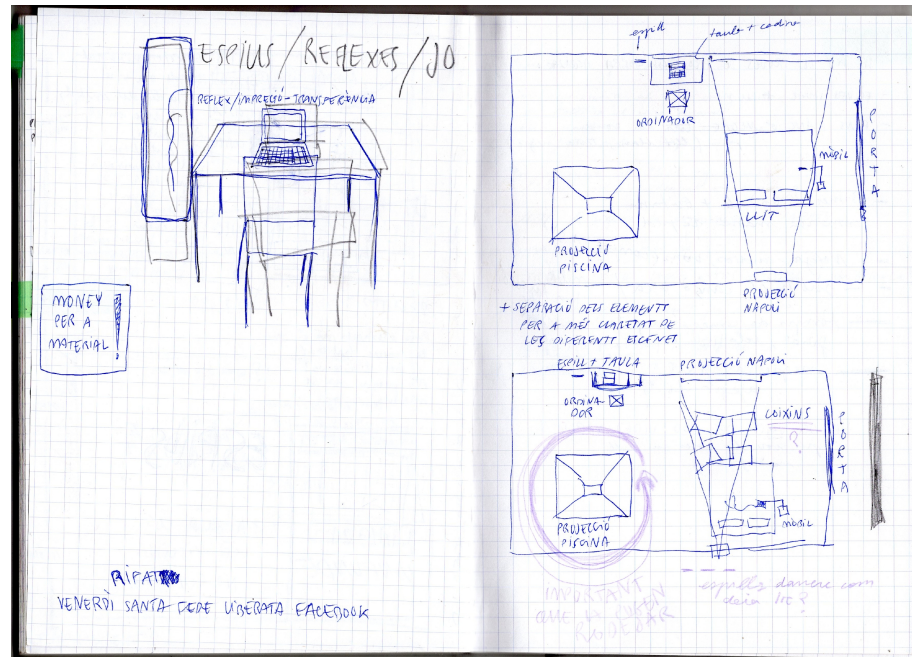 ESPILLS/REFLEXES/JO
REFLEX/IMPRECIÓ-TRANSFERÈNCIA
MONEY
PER A
MATERIAL!
RIPA
VENERDÌ SANTA FEDE LIBERATA FACEBOOK
espill
taula + cadira
ORDINADOR
PORTA
mòbil
LLIT
PROJECCIÓ
PISCINA
PROJECCIÓ
NAPOLI
+ SEPARACIÓ DELS ELEMENTS
PER A MÉS CLARETAT DE
LES DIFERENTS ESCENES
ESPILL + TAULA
PROJECCIÓ NAPOLI
ORDINA-
DOR
COIXINS
?
PORTA
mòbil
PROJECCIÓ
PISCINA
IMPORTANT
QUE LA PUGUEN
RODEJAR
espills darrere com
deia